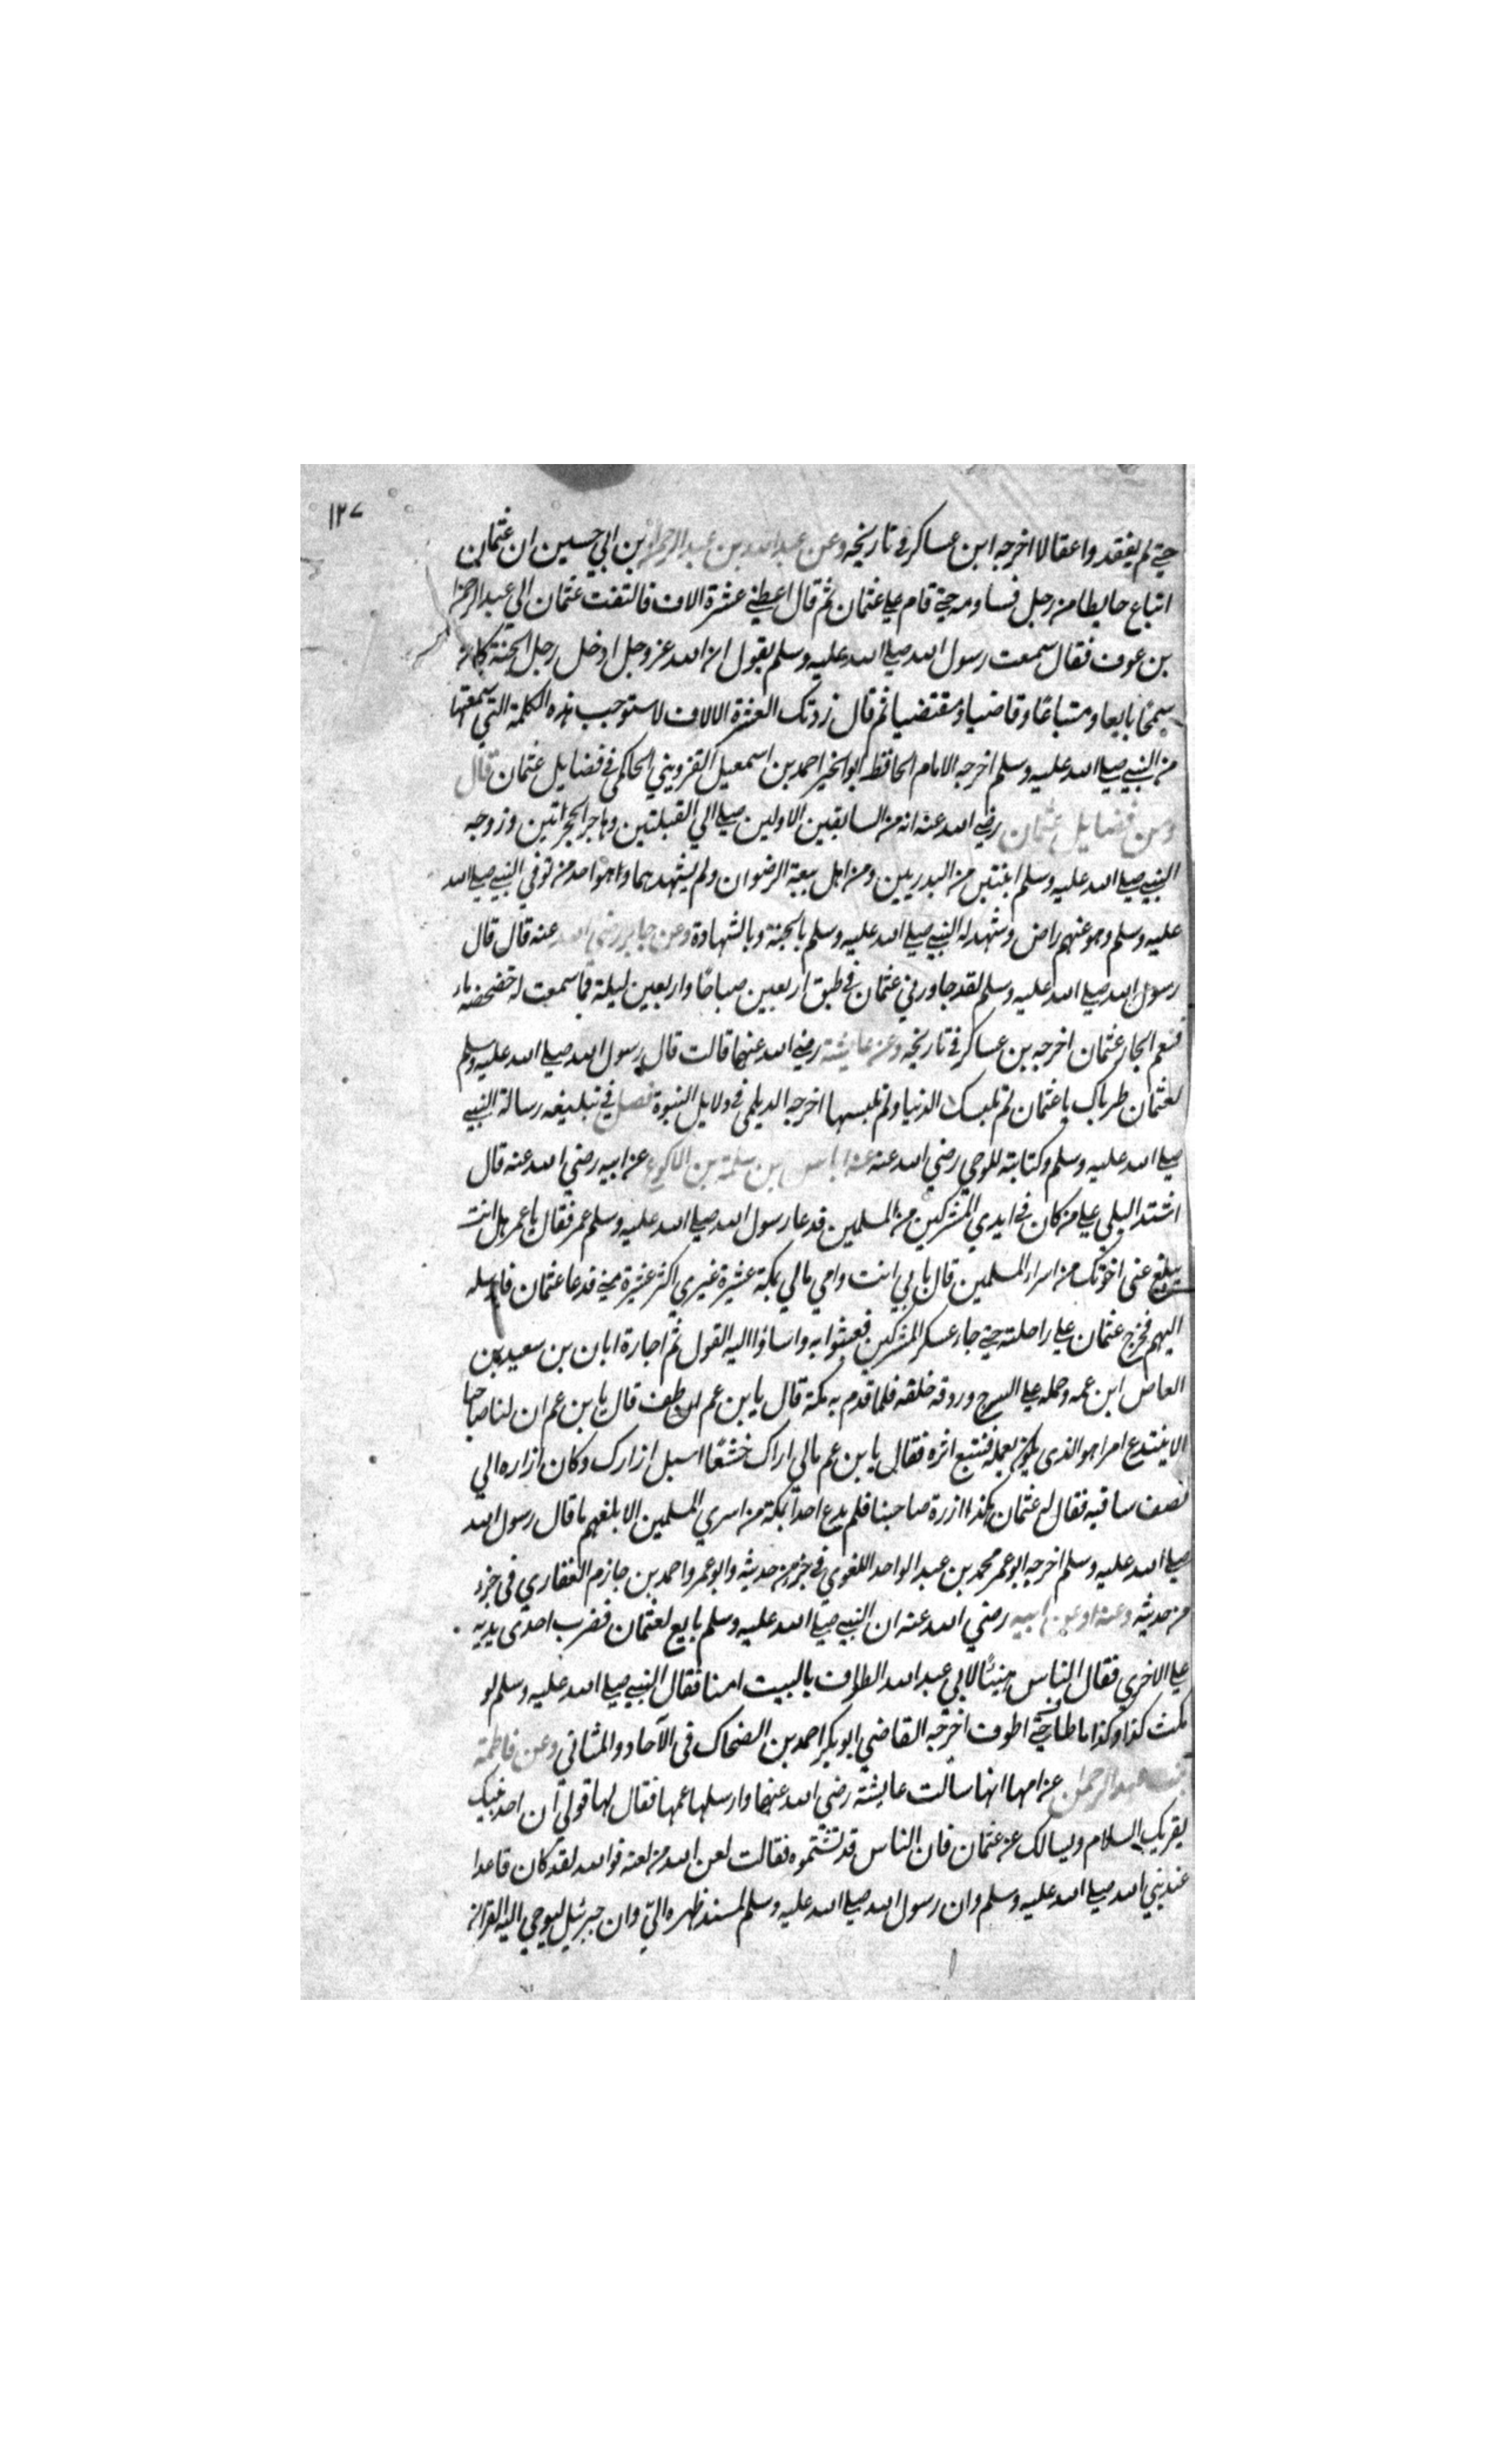 ١٢٧
حتي لم يفقدوا عقالا اخرجه ابن عساكر في تاريخه وعن عبد الله بن عبد الرحمن بن ابي حسين ان عثمان
ابتاع حايطا من رجل فساومه حتي قام علي عثمان ثم قال اعطني عشرة الاف فالتفت عثمان الي عبد الرحمن
بن عوف فقال سمعت رسول الله صلي الله عليه وسلم يقول ان الله عز وجل ادخل رجل الجنة كان
سمحًا بايعا ومتباعًا وقاضيا ومقتضيا ثم قال زدتك العشرة الالاف لاستوجب هذه الكلمة التي سمعتها
من النبي صلي الله عليه وسلم اخرجه الامام الحافظ ابو الخير احمد بن اسمعيل القزويني الحاكمي في فضايل عثمان قال
ومن فضايل عثمان رضي الله عنه انه من السابقين الاولين صلي الي القبلتين وهاجر الهجرتين وزوجه
النبي صلي الله عليه وسلم ابنتين من البدريين ومن اهل بيعة الرضوان ولم يشهدهما واحد من توفي النبي صلي الله
عليه وسلم وهو عنهم راض وشهد له النبي صلي الله عليه وسلم بالجنة وبالشهادة وعن جابر رضي الله عنه قال قال
رسول الله صلي الله عليه وسلم لقد جاورني عثمان في طبق اربعين صباحًا واربعين ليلة فما سمعت له خضخضه ماء
فنعم الجار عثمان اخرجه بن عساكر في تاريخه وعن عايشة رضي الله عنها قالت قال رسول الله صلي الله عليه وسلم
لعثمان طرباك يا عثمان لم تلبسك الدنيا ولم تلبسها اخرجه الديلمي في دلايل النبوة فصل في تبليغه رسالة النبي
صلي الله عليه وسلم وكتابته للوحي رضي الله عنه عن اياس بن سلمة بن الاكوع عن ابيه رضي الله عنه قال
اشتد البلي علي من كان في ايدي المشركين من المسلمين فدعا رسول الله صلي الله عليه وسلم عمر فقال يا عمر هل انت
مبلغ عني اخوتك من اسراء المسلمين قال بابي انت وامي مالي بمكة عشيرة غيري اكثر عشيرة مني فدعا عثمان فارسله
اليهم فخرج عثمان علي راحلته حتي جاء عسكر المشركين فعبثوا به واساؤا اليه القول ثم اجاره ابان بن سعيد بن
العاص ابن عمه وحمله علي السرج وردفه خلفه فلما قدم به مكة قال يا بن عم طف قال يا بن عم ان لنا صاحبا
لا نبتدع امرا هو الذي يكون يعمله فنتبع اثره فقال يا بن عم مالي اراك خشعًا اسبل ازارك وكان ازاره الي
نصف ساقيه فقال له عثمان هكذا ازرة صاحبنا فلم يدع احدًا بمكة من اسري المسلمين الا بلغهم ما قال رسول الله
صلي الله عليه وسلم اخرجه ابو عمر محمد بن عبد الواحد اللغوي في جزء من حديثه وابو عمرو احمد بن حازم الغفاري في جزء
من حديثه وعنه او عن ابيه رضي الله عنه ان النبي صلي الله عليه وسلم بايع لعثمان فضرب احدى يديه
علي الاخري فقال الناس هنيئًا لابي عبد الله الطواف بالبيت امنا فقال النبي صلي الله عليه وسلم لو
مكث كذا وكذا ما طاف حتي اطوف اخرجه القاضي ابو بكر احمد بن الضحاك في الآحاد والمثاني وعن فاطمة
بنت عبد الرحمن عن امها انها سألت عايشة رضي الله عنها وارسلها عمها فقال لها قولي ان احد بنيك
يقريك السلام ويسالك عن عثمان فان الناس قد تشتموه فقالت لعن الله من لعنه فوالله لقد كان قاعدا
عند نبي الله صلي الله عليه وسلم وان رسول الله صلي الله عليه وسلم لمسند ظهره اليّ وان جبرئيل ليوحي اليه القران